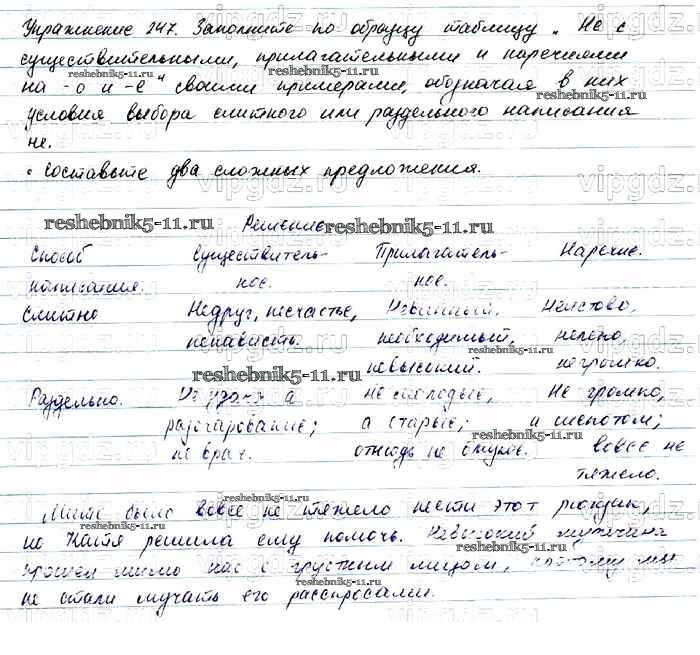 Упражнение 247. Заполните по образцу таблицу „Не с
существительными, прилагательными и наречиями
на -о и -е" своими примерами, обозначая в них
условия выбора слитного или раздельного написания
не.
• Составьте два сложных предложения.
Решение
Способ Существитель- Прилагатель- Наречие.
написания. ное. ное.
Слитно Недруг, несчастье, Невинный, Неистово,
ненависть. необходимый, нелепо,
невысокий. негромко.
Раздельно. Не удача а не молодые, Не громко,
разочарование; а старые; и шепотом;
не враг. отнюдь не вовсе не
тяжело.
Мите было вовсе не тяжело нести этот рюкзак,
но Катя решила ему помочь. Невысокий мужчина
прошел мимо нас с грустным лицом, поэтому мы
не стали мучать его расспросами.
reshebnik5-11.ru
vipgdz.ru